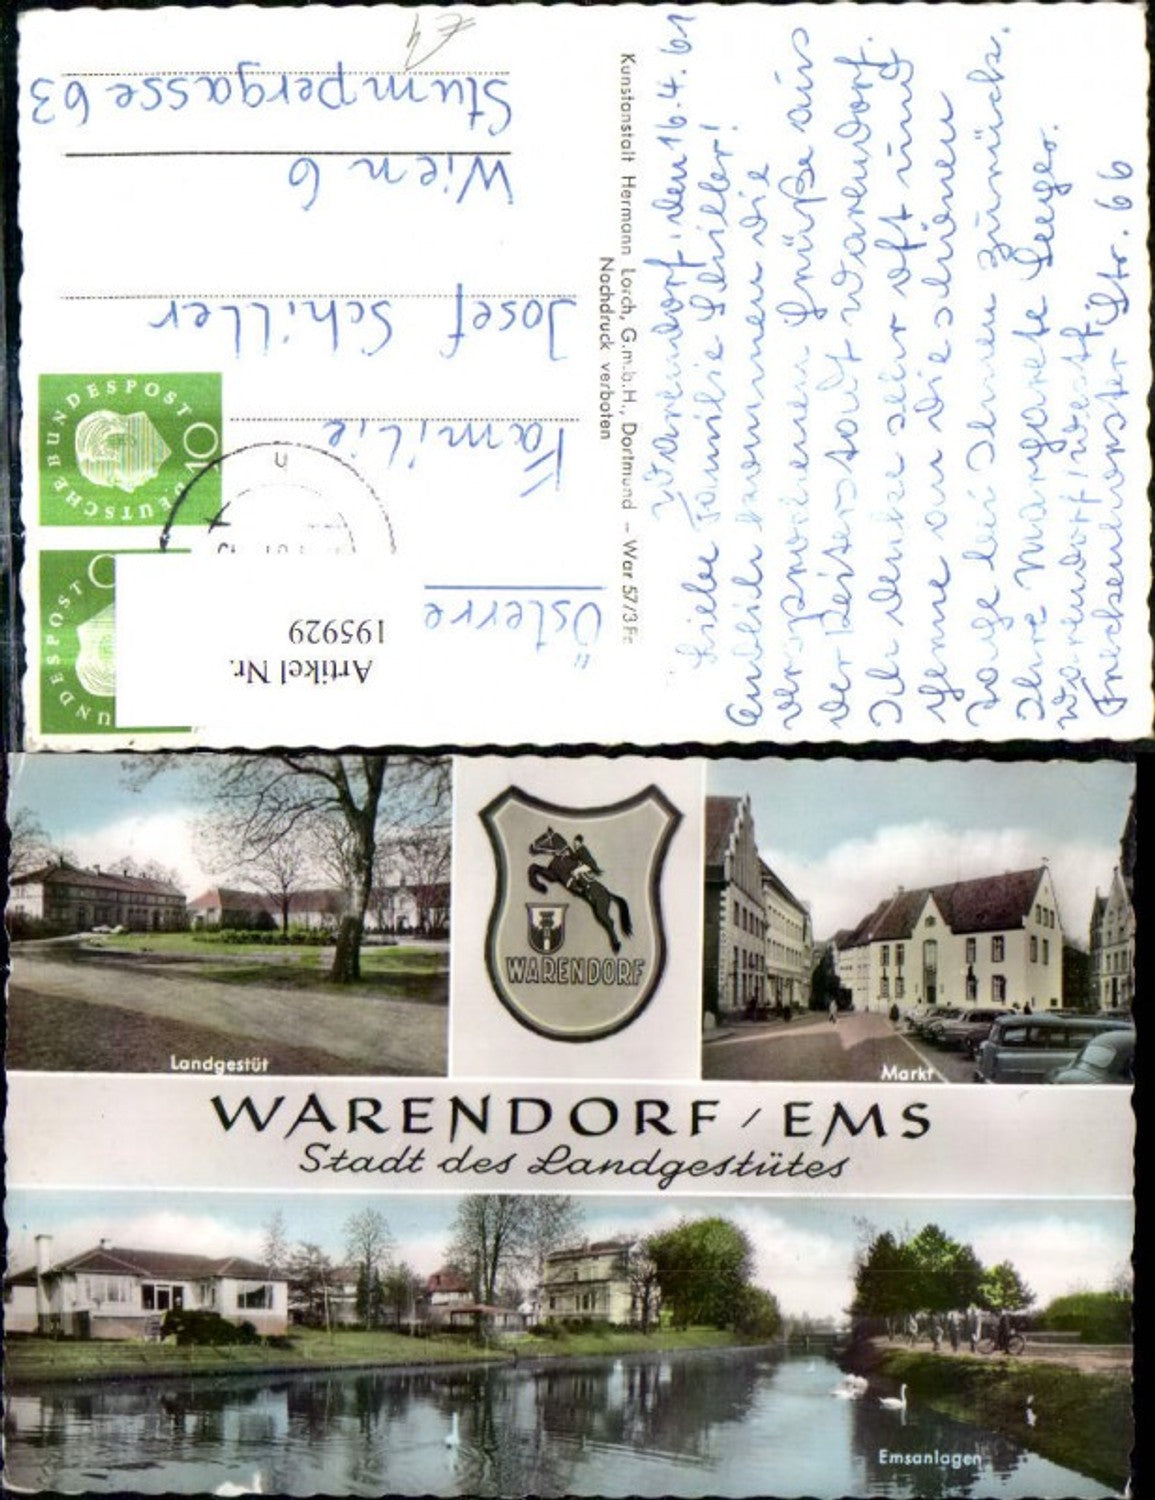 Warendorf, den 16.4.61
Liebe Familie Schiller!
Endlich kommen die
versprochenen Grüße aus
der Reiterstadt Warendorf.
Ich denke sehr oft und
gerne an die schönen
Tage bei Ihnen zurück.
Ihre Margarete Seeger.
Warendorf, Westf
Freckenhorster Str. 66
Kunstanstalt Hermann Lorch, G.m.b.H., Dortmund – War 57/3 Fc
Nachdruck verboten
Österre
Familie
Josef Schiller
Wien 6
Stumpergasse 63
€ 4
DEUTSCHE BUNDESPOST
10
UNDESPOST
Artikel Nr.
195929
WARENDORF
Landgestüt
Markt
WARENDORF / EMS
Stadt des Landgestütes
Emsanlagen